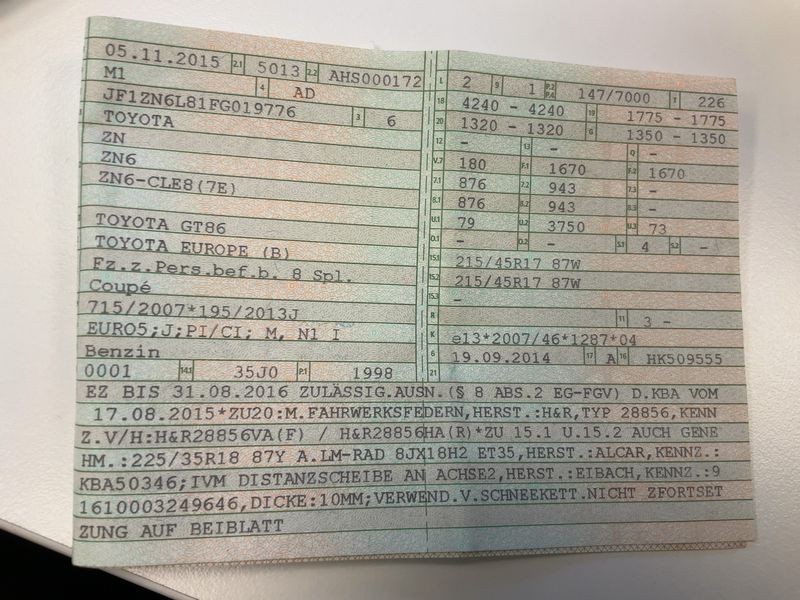 05.11.2015 2.1 5013 2.2 AHS000172
M1 4 AD
JF1ZN6L81FG019776 3 6
TOYOTA
ZN
ZN6
ZN6-CLE8(7E)
TOYOTA GT86
TOYOTA EUROPE (B)
Fz.z.Pers.bef.b. 8 Spl.
Coupé
715/2007*195/2013J
EURO5;J;PI/CI; M, N1 I
Benzin
0001 14.1 35J0 P.1 1998
L 2 9 1 P.2 P.4 147/7000 T 226
18 4240 - 4240 19 1775 - 1775
20 1320 - 1320 G 1350 - 1350
12 - 13 - Q -
V.7 180 F.1 1670 F.2 1670
7.1 876 7.2 943 7.3 -
8.1 876 8.2 943 8.3 -
U.1 79 U.2 3750 U.3 73
O.1 - O.2 - S.1 4 S.2 -
15.1 215/45R17 87W
15.2 215/45R17 87W
15.3 -
R 11 3 -
K e13*2007/46*1287*04
6 19.09.2014 17 A 16 HK509555
21
EZ BIS 31.08.2016 ZULÄSSIG.AUSN.(§ 8 ABS.2 EG-FGV) D.KBA VOM
17.08.2015*ZU20:M.FAHRWERKSFEDERN,HERST.:H&R,TYP 28856,KENN
Z.V/H:H&R28856VA(F) / H&R28856HA(R)*ZU 15.1 U.15.2 AUCH GENE
HM.:225/35R18 87Y A.LM-RAD 8JX18H2 ET35,HERST.:ALCAR,KENNZ.:
KBA50346;IVM DISTANZSCHEIBE AN ACHSE2,HERST.:EIBACH,KENNZ.:9
1610003249646,DICKE:10MM;VERWEND.V.SCHNEEKETT.NICHT ZFORTSET
ZUNG AUF BEIBLATT